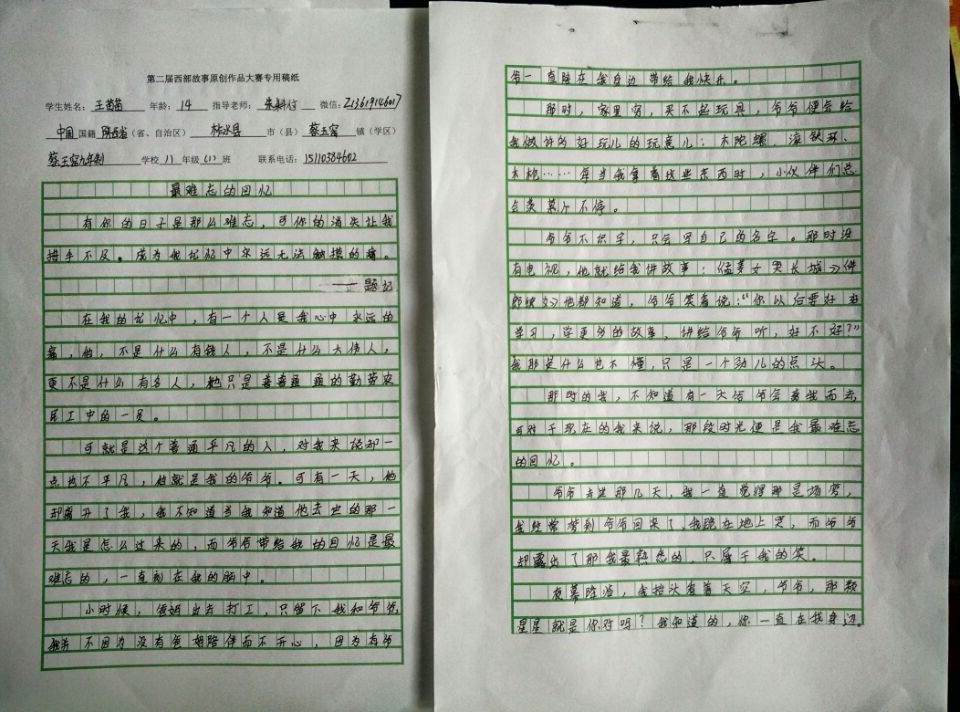 第二届西部故事原创作品大赛专用稿纸
学生姓名： 王茜茜 年龄： 14 指导老师： 微信： Z13619146017
中国 国籍 陕西省（省、自治区） 市（县） 蔡玉窑 镇（学区）
蔡玉窑九年制 学校 八 年级（1）班 联系电话：15110384602
最难忘的回忆
有你的日子是那么难忘，可你的消失让我
措手不及。成为我记忆中永远无法触摸的痛。
——题记
在我的记忆中，有一个人是我心中永远的
痛，他，不是什么有钱人，不是什么大伟人，
更不是什么有名人，他只是普普通通的勤劳农
民工中的一员。
可就是这个普通平凡的人，对我来说却一
点也不平凡，他就是我的爷爷。可有一天，他
却离开了我，我不知道当我知道他去世的那一
天我是怎么过来的，而爷爷带给我的回忆是最
难忘的，一直刻在我的脑中。
小时候，爸妈出去打工，只留下我和爷爷
我并不因为没有爸妈陪伴而不开心，因为有爷
爷一直陪在我身边带给我快乐。
那时，家里穷，买不起玩具，爷爷便会给
我做许多好玩儿的玩意儿：木陀螺、滚铁环、
木枪……每当我拿着这些东西时，小伙伴们总
会羡慕个不停。
爷爷不识字，只会写自己的名字。那时没
有电视，他就给我讲故事；《孟姜女哭长城》《牛
郎织女》他都知道，爷爷笑着说：“你以后要好好
学习，学更多的故事，讲给爷爷听，好不好？”
我那是什么也不懂，只是一个劲儿的点头。
那时的我，不知道有一天爷爷会离我而去，
可对于现在的我来说，那段时光便是我最难忘
的回忆。
爷爷去世那几天，我一直觉得那是场梦，
我经常梦到爷爷回来了，我跪在地上哭，而爷爷
却露出了那我最熟悉的，只属于我的笑。
夜幕降临，我抬头看着天空，爷爷，那颗
星星就是你对吗？我知道的，你一直在我身边。